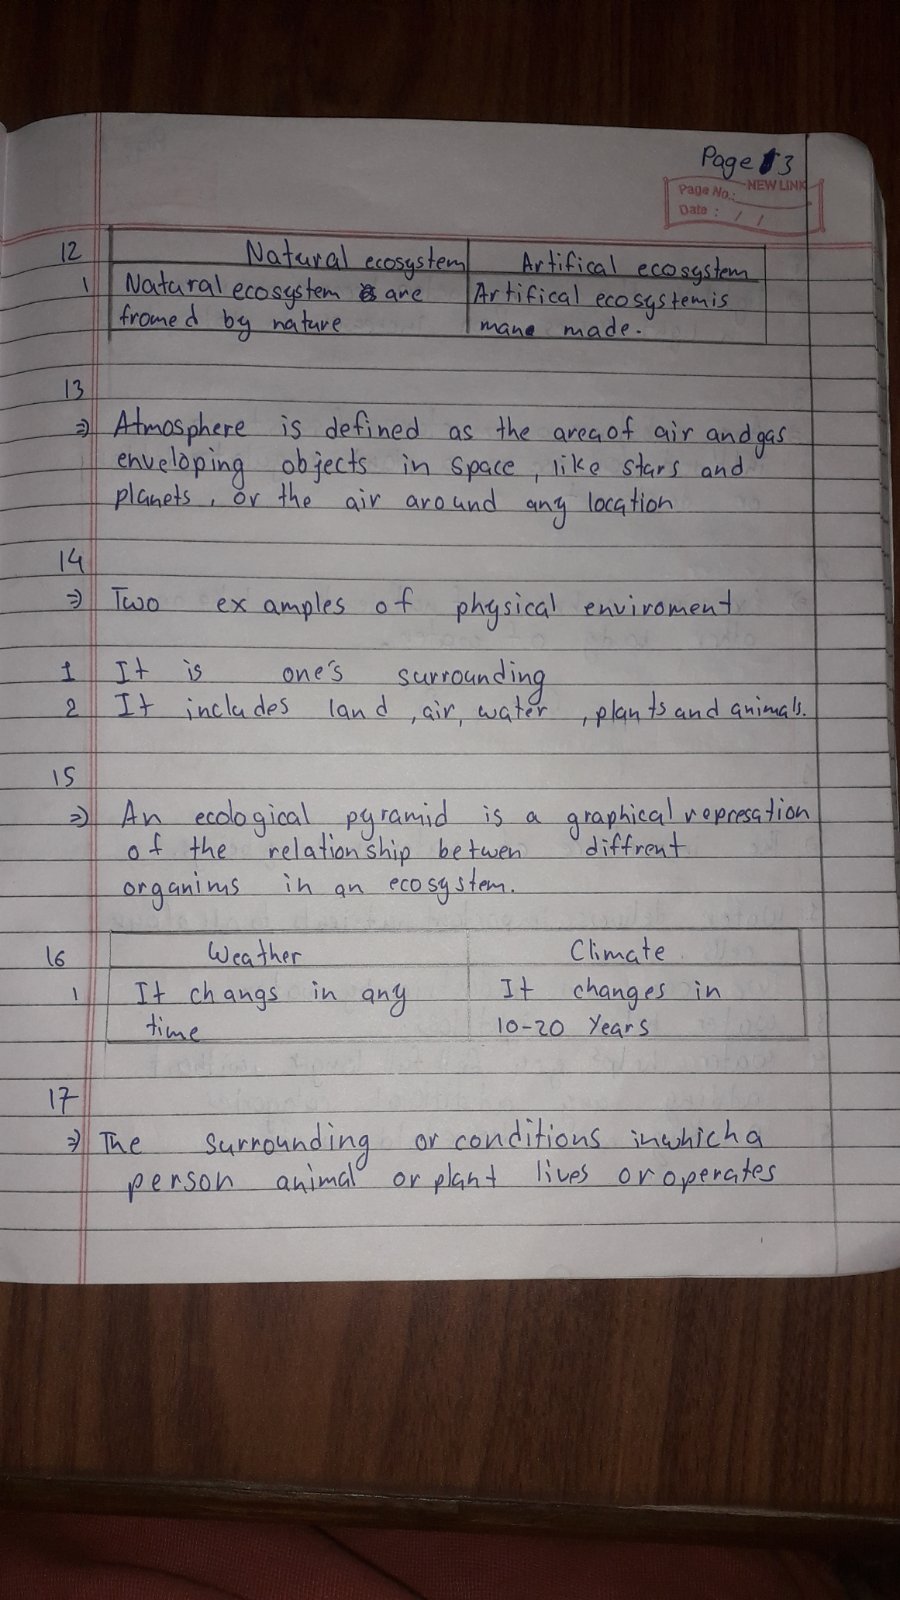 Page 3
NEW LINK
Page No.:
Date : / /
12 Natural ecosystem Artifical ecosystem
1 Natural ecosystem are Artifical ecosystem is
fromed by nature mane made.
13
⇒ Atmosphere is defined as the area of air and gas
enveloping objects in space, like stars and
planets, or the air around any location
14
⇒ Two examples of physical enviroment
1 It is one's surrounding
2 It includes land, air, water, plants and animals.
15
⇒ An ecological pyramid is a graphical represation
of the relationship betwen diffrent
organims in an ecosystem.
16 Weather Climate
1 It changs in any It changes in
time 10-20 Years
17
⇒ The surrounding or conditions in which a
person animal or plant lives or operates